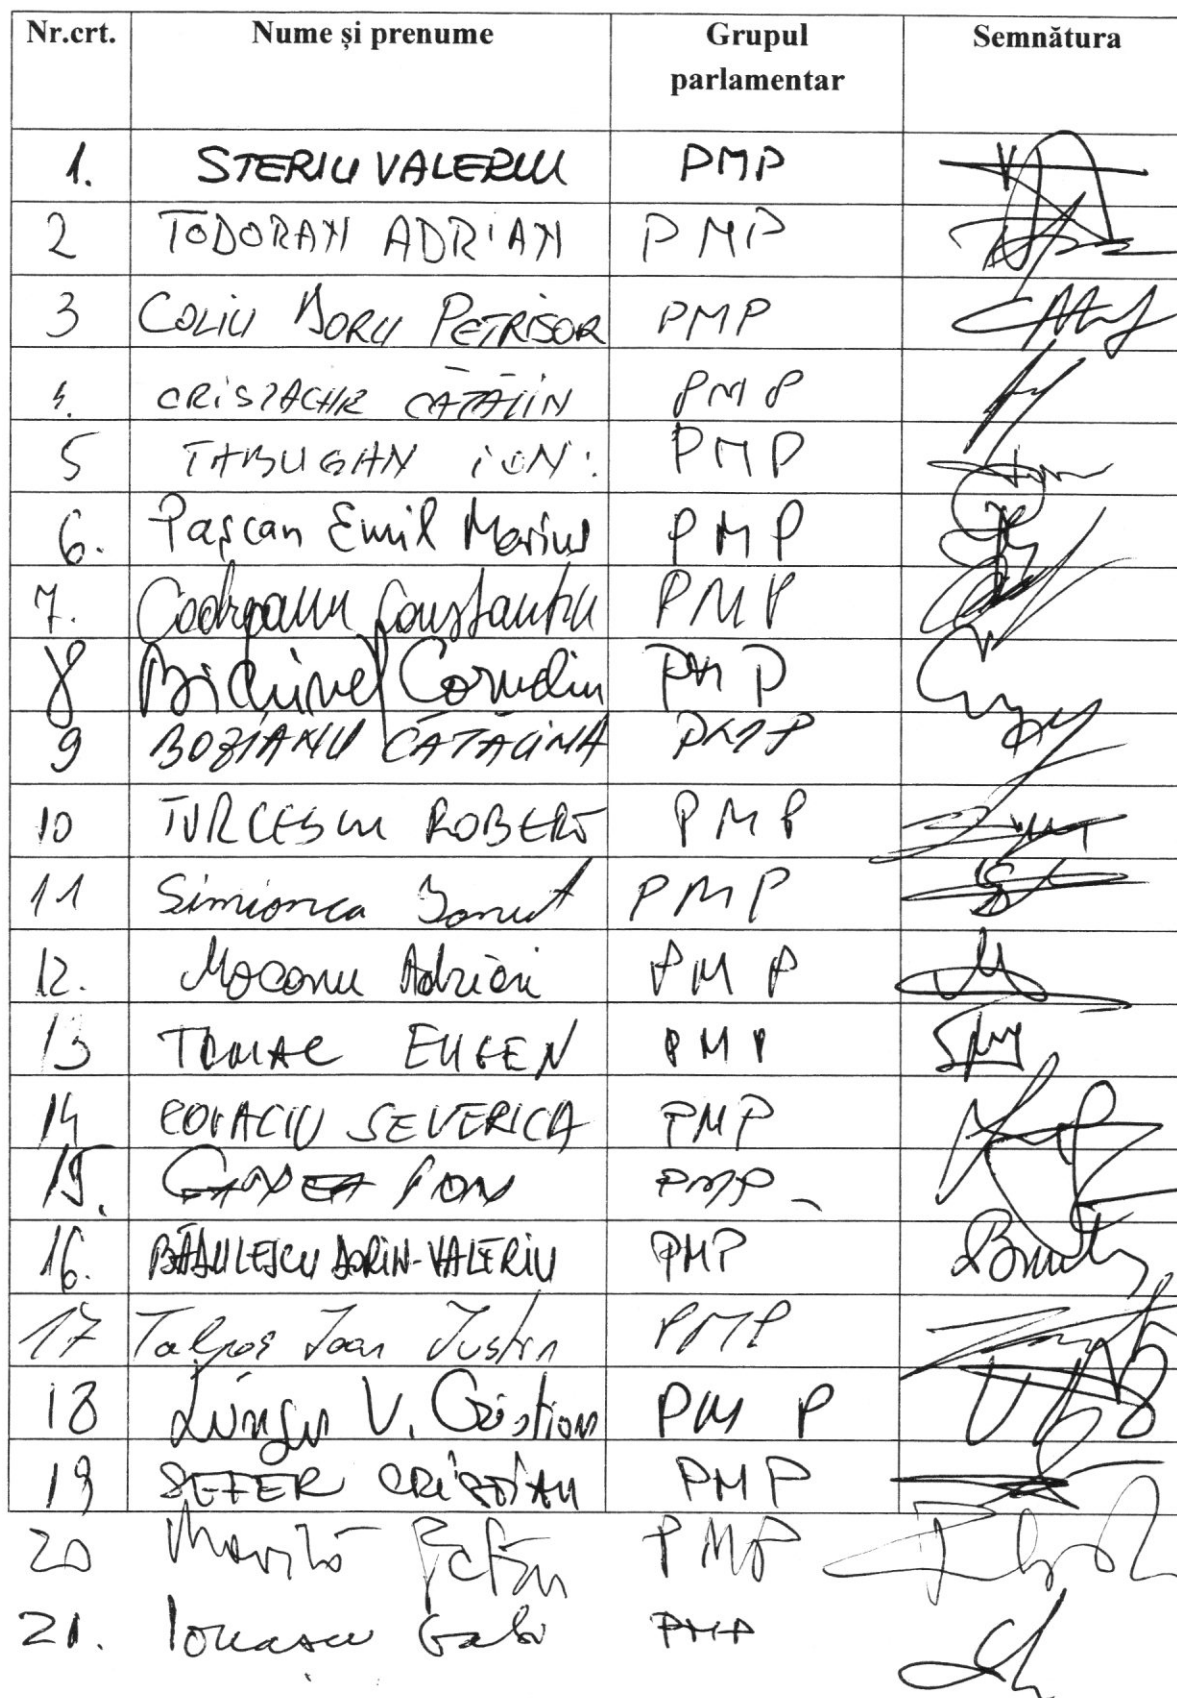 Nr.crt. Nume și prenume Grupul parlamentar Semnătura
1. STERIU VALERIU PMP
2 TODORAN ADRIAN PMP
3 COLIU DORU PETRISOR PMP
4. CRISTACHE CĂTĂLIN PMP
5 TABUGAN ION. PMP
6. Pașcan Emil Marius PMP
7. Codreanu Constantin PMP
8 Bichineț Corneliu PMP
9 BOZIANU CĂTĂLINA PMP
10 TURCESCU ROBERT PMP
11 Simionca Ionut PMP
12. Mocanu Adrian PMP
13 TOMAC EUGEN PMP
14 COVACIU SEVERICA PMP
15. GADEA ION PMP
16. BĂDULESCU DORIN-VALERIU PMP
17 Talpos Ioan Iustin PMP
18 Lungu V. Cristian PMP
19 SEFER CRISTIAN PMP
20 PMP
21. PMP